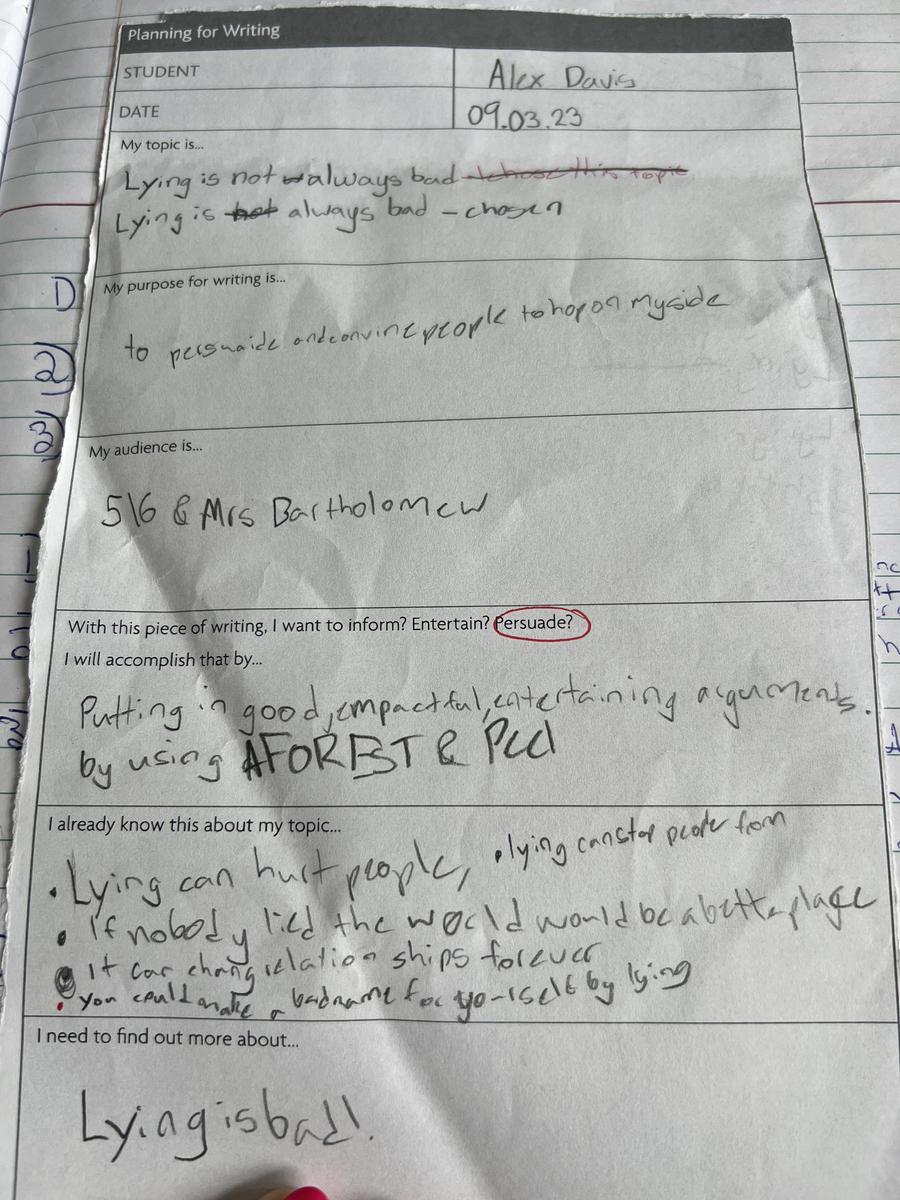 Planning for Writing
STUDENT Alex Davis
DATE 09.03.23
My topic is...
Lying is not always bad I chose this topic
Lying is not always bad - chosen
My purpose for writing is...
to persuaide and convince people to hop on my side
My audience is...
5/6 & Mrs Bartholomew
With this piece of writing, I want to inform? Entertain? Persuade?
I will accomplish that by...
Putting in good, empactful, entertaining arguments.
by using AFOREST & Peel
I already know this about my topic...
• Lying can hurt people, • lying can stop people from
• If nobody lied the world would be a better plage
It can chang relation ships forever
• you could make a bad name for yo-rself by lying
I need to find out more about...
Lying is bad!.
D
2)
3)